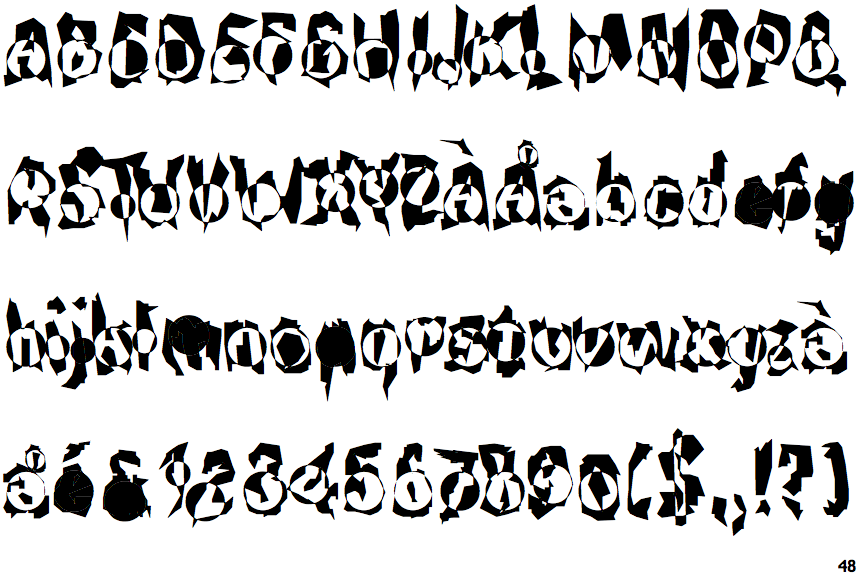 ABCDEFGHIJKLMNOPQ
RSTUVWXYZÀÅabcdefg
hijklmnopqrstuvwxyzà
åé&1234567890($.,!?)
48